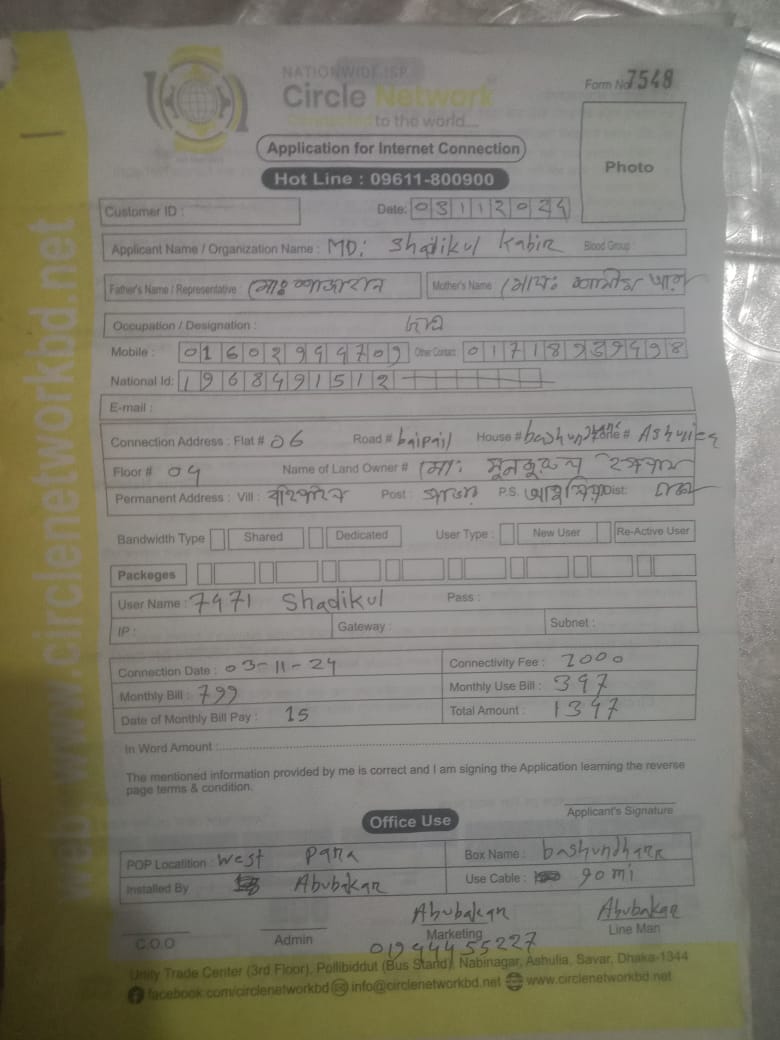 NATIONWIDE ISP
Circle Network
Connected to the world....
Form No 7548
Application for Internet Connection
Photo
Hot Line : 09611-800900
Customer ID :
Date: 03112024
Applicant Name / Organization Name : MD: Shadikul Kabir Blood Group :
Father's Name / Representative : মোঃ Mother's Name :
Occupation / Designation :
Mobile : 01602994709 Other Contact: 01718939498
National Id: 1968491512
E-mail :
Connection Address : Flat # 06 Road # baipail House # Zone # Ashulia
Floor # 04 Name of Land Owner # মো:
Permanent Address : Vill : বাইপাইল Post : P.S. আশুলিয়া Dist: ঢাকা
Bandwidth Type Shared Dedicated User Type : New User Re-Active User
Packeges
User Name : 7471 Shadikul Pass :
IP : Gateway : Subnet :
Connection Date : 03-11-24 Connectivity Fee : 1000
Monthly Bill : 799 Monthly Use Bill : 397
Date of Monthly Bill Pay : 15 Total Amount : 1397
In Word Amount :
The mentioned information provided by me is correct and I am signing the Application learning the reverse
page terms & condition.
Applicant's Signature
Office Use
POP Locatition : West para Box Name : bashundhara
Installed By Abubakar Use Cable : 90 mi
Abubakar Abubakar
C.O.O Admin Marketing Line Man
01944455227
Unity Trade Center (3rd Floor), Pollibiddut (Bus Stand), Nabinagar, Ashulia, Savar, Dhaka-1344
facebook.com/circlenetworkbd info@circlenetworkbd.net www.circlenetworkbd.net
web: www.circlenetworkbd.net